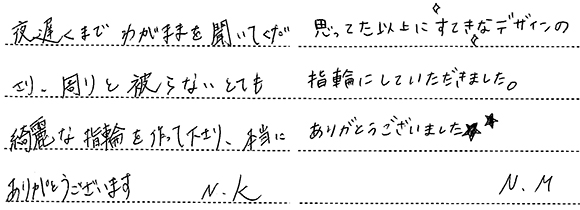 夜遅くまで わがままを聞いてくだ
さり、周りと 被らないとても
綺麗な 指輪を作って下さり、本当に
ありがとうございます N.K
思ってた以上に すてきなデザインの
指輪にしていただきました。
ありがとうございました★★
N.M